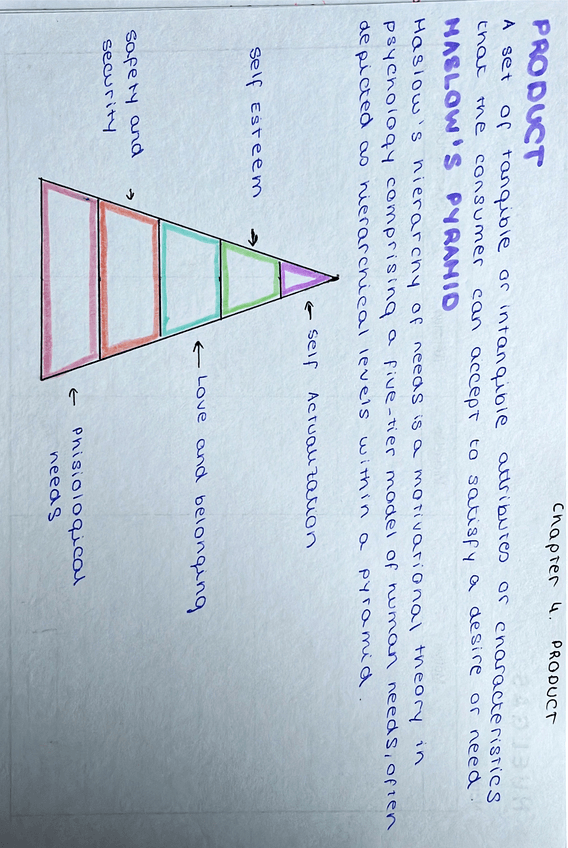 Chapter 4. PRODUCT
PRODUCT
A set of tangible or intangible attributes or characteristics
that the consumer can accept to satisfy a desire or need.
MASLOW'S PYRAMID
Maslow's hierarchy of needs is a motivational theory in
psychology comprising a five-tier model of human needs, often
depicted as hierarchical levels within a pyramid.
Self Actualization
Self Esteem
Love and belonging
Safety and
security
Phisiological
needs